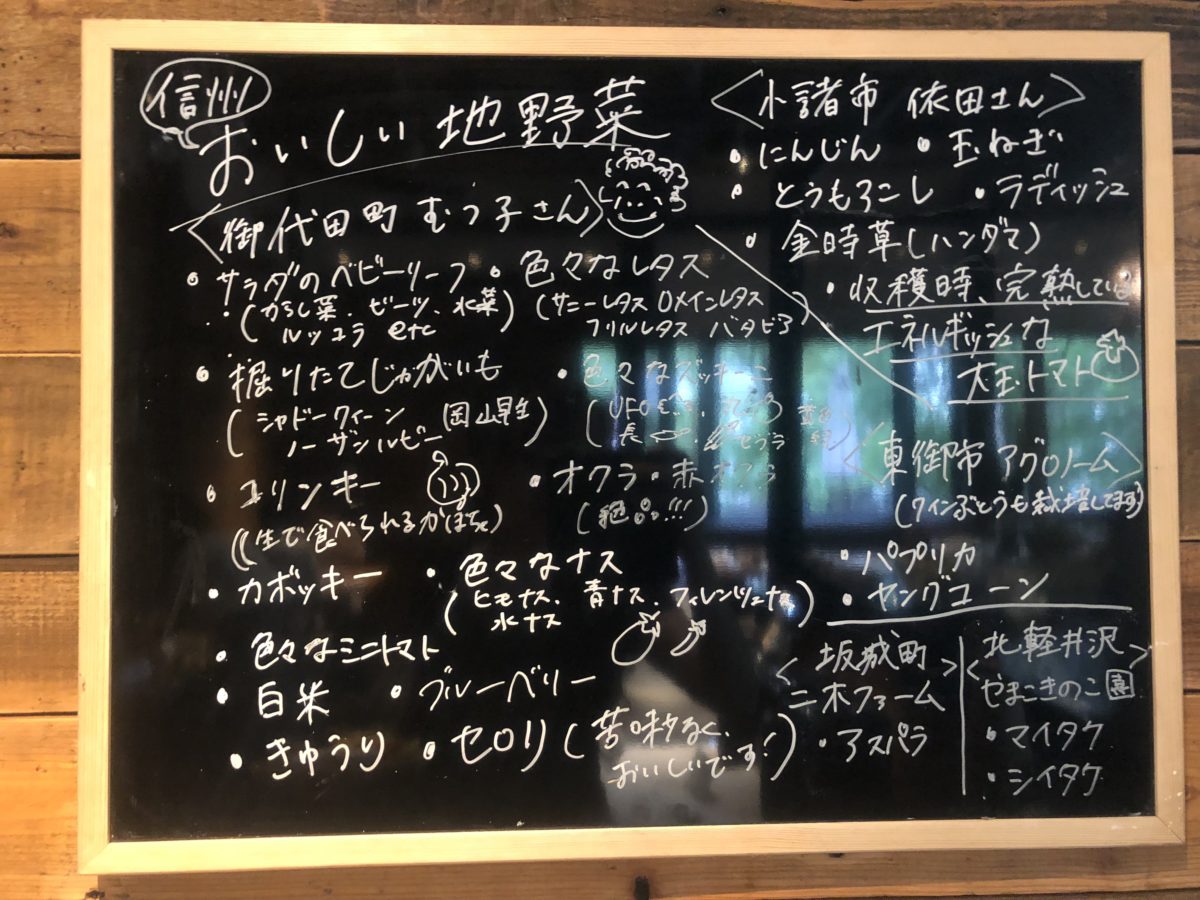 信州
おいしい地野菜
<御代田町 むつ子さん>
・サラダのベビーリーフ
(からし菜、ビーツ、水菜
ルッコラ etc)
・色々なレタス
(サニーレタス ロメインレタス
フリルレタス バタビア)
・掘りたてじゃがいも
(シャドークィーン 岡山早生
ノーザンルビー)
・色々なズッキーニ
(UFOズッキ、
長 ゼブラ)
・コリンキー
(生で食べられるかぼちゃ)
・オクラ・赤オクラ
(絶品!!!)
・カボッキー
・色々なナス
(ヒモナス、青ナス、フィレンツェナス
水ナス)
・色々なミニトマト
・白米
・ブルーベリー
・きゅうり
・セロリ(苦味少なく、
おいしいです!)
<小諸市 依田さん>
・にんじん ・玉ねぎ
・とうもろこし ・ラディッシュ
・金時草(ハンダマ)
・収穫時、完熟している
エネルギッシュな
大玉トマト
<東御市 アグロノーム>
(ワインぶどうも栽培してます)
・パプリカ
・ヤングコーン
<坂城町
二木ファーム>
・アスパラ
<北軽井沢
やまこきのこ園>
・マイタケ
・シイタケ